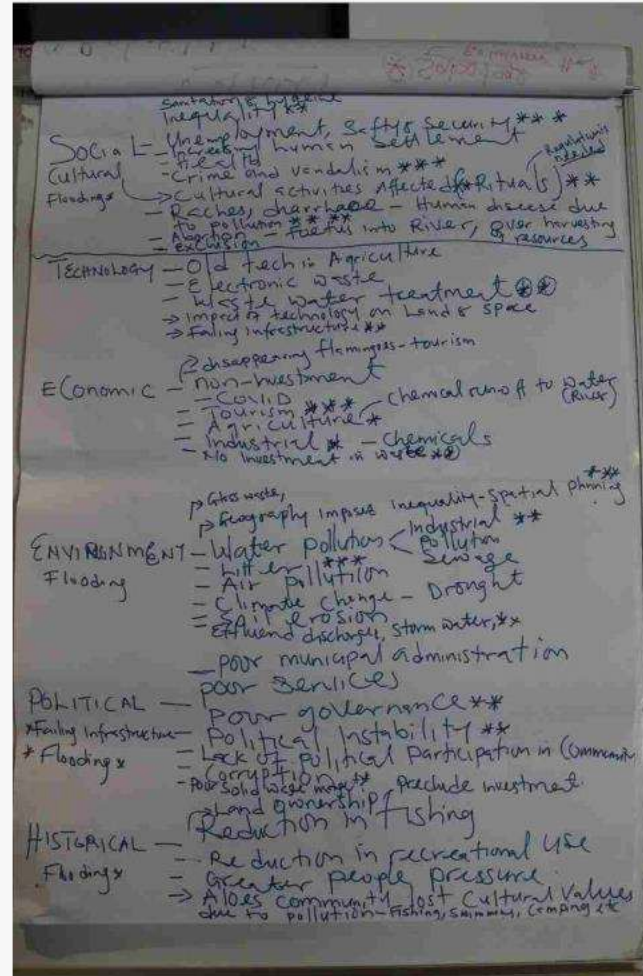 Sanitation & hygeine
Inequality **
Social - Unemployment, Safty & Security ***
- Increasing human Settlement
- Health
Cultural - Crime and vandalism ***
Regulations needed
Floodings * → Cultural activities Affected (Rituals) **
- Raches, diarrhaoe - Human disease due
to pollution ** **
- Abortions - foetus into River, over harvesting
- Exclusion of resources
TECHNOLOGY - Old tech in Agriculture
- Electronic waste
- Waste water treatment
→ Impact of technology on Land & Space
→ Failing infrastructure **
→ disappearing flamingoes - tourism
ECONOMIC - Non-investment
- COVID
- Tourism ***
- Agriculture * - chemical runoff to water
(River)
- Industrial * - Chemicals
- No Investment in waste *
→ Glass waste,
→ Geography Impises Inequality - Spatial planning ***
ENVIRONMENT - Water Pollution < Industrial **
Pollution
Sewage
Flooding - Litter ***
- Air pollution
- Climate Change - Drought
- Soil erosion
- Effluend discharges, storm water, **
- poor municipal administration
POLITICAL - poor services
- Poor governance **
* Failing Infrastructure - Political Instability **
* Floodings * - Lack of political Participation in Community
- Corruption
- Poor Solid waste mngt * Preclude investment
→ Land ownership
HISTORICAL - Reduction in fishing
- Reduction in recreational use
Floodings * - Greater people pressure
→ Aloes community lost Cultural Values
due to pollution - Fishing, Swimming, Camping etc